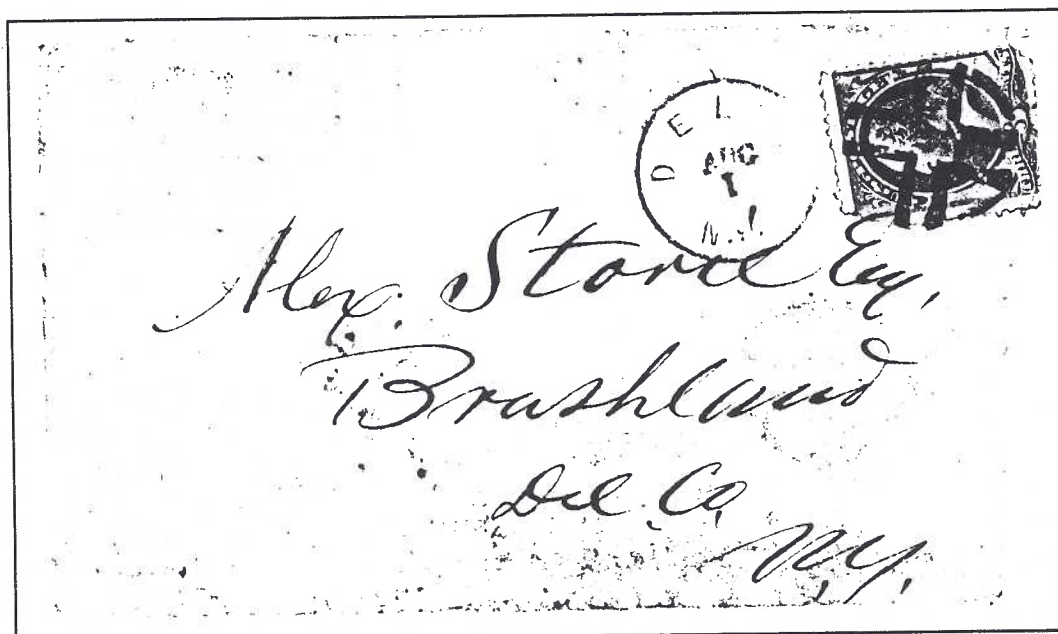 DEL
AUG
1
N.Y.
Alex. Storie Esq.
Brushland
Del. Co.
N.Y.